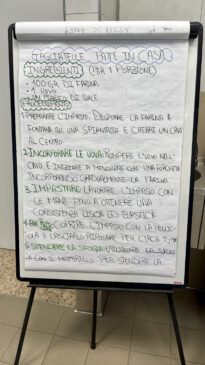 TAGLIATELLE FATTE IN CASA
INGREDIENTI (PER 1 PORZIONE)
• 100 GR DI FARINA
• 1 UOVO
DI SALE
PROCEDIMENTO
1. PREPARARE L'IMPASTO: DISPORRE LA FARINA A
FONTANA SU UNA SPIANATOIA E CREARE UN CAVO
AL CENTRO
2. INCORPORARE LE UOVA: ROMPERE L'UOVO NELL'
CAVO E INIZIARE A MESCOLARE CON UNA FORCHETTA
INCORPORANDO GRADUALMENTE LA FARINA
3. IMPASTARE: LAVORARE L'IMPASTO CON
LE MANI FINO A OTTENERE UNA
CONSISTENZA LISCIA ED ELASTICA
4. COPRIRE L'IMPASTO CON LA PELLI-
COLA E LASCIARLO RIPOSARE PER CIRCA
5. STENDERE LA SFOGLIA:
CON IL MATTARELLO PER STENDERE LA